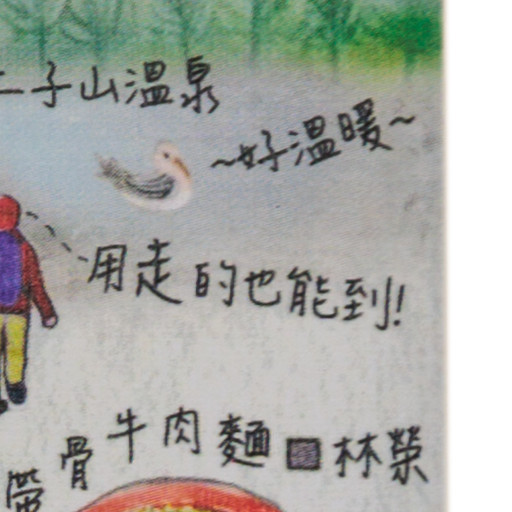 二子山溫泉
~好溫暖~
用走的也能到!
帶骨牛肉麵■林榮